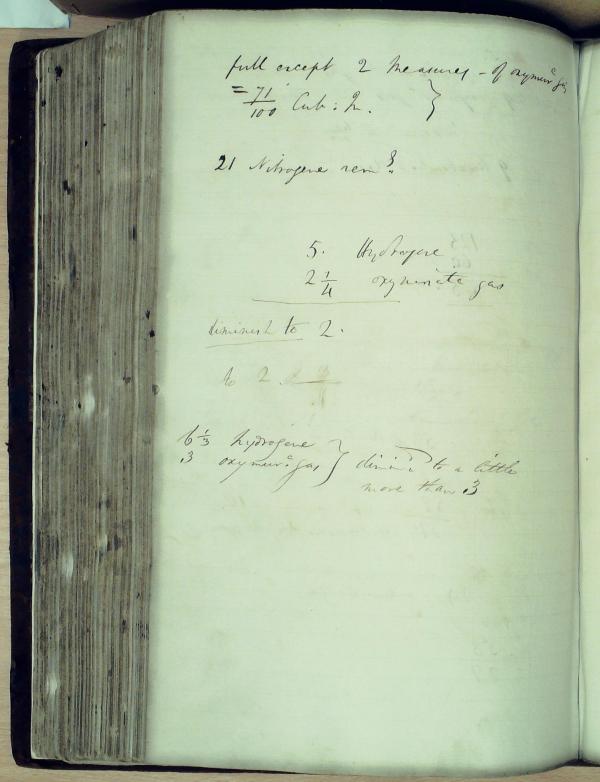 full except 2 Measures - of oxymurc gas
= 71/100 Cub: In.
21 Nitrogene remg
5. Hydrogene
2 1/4 oxymuriatc gas
diminish to 2.
to 2
6 1/3 hydrogene
3 oxymurc gas } dimind to a little
more than 3